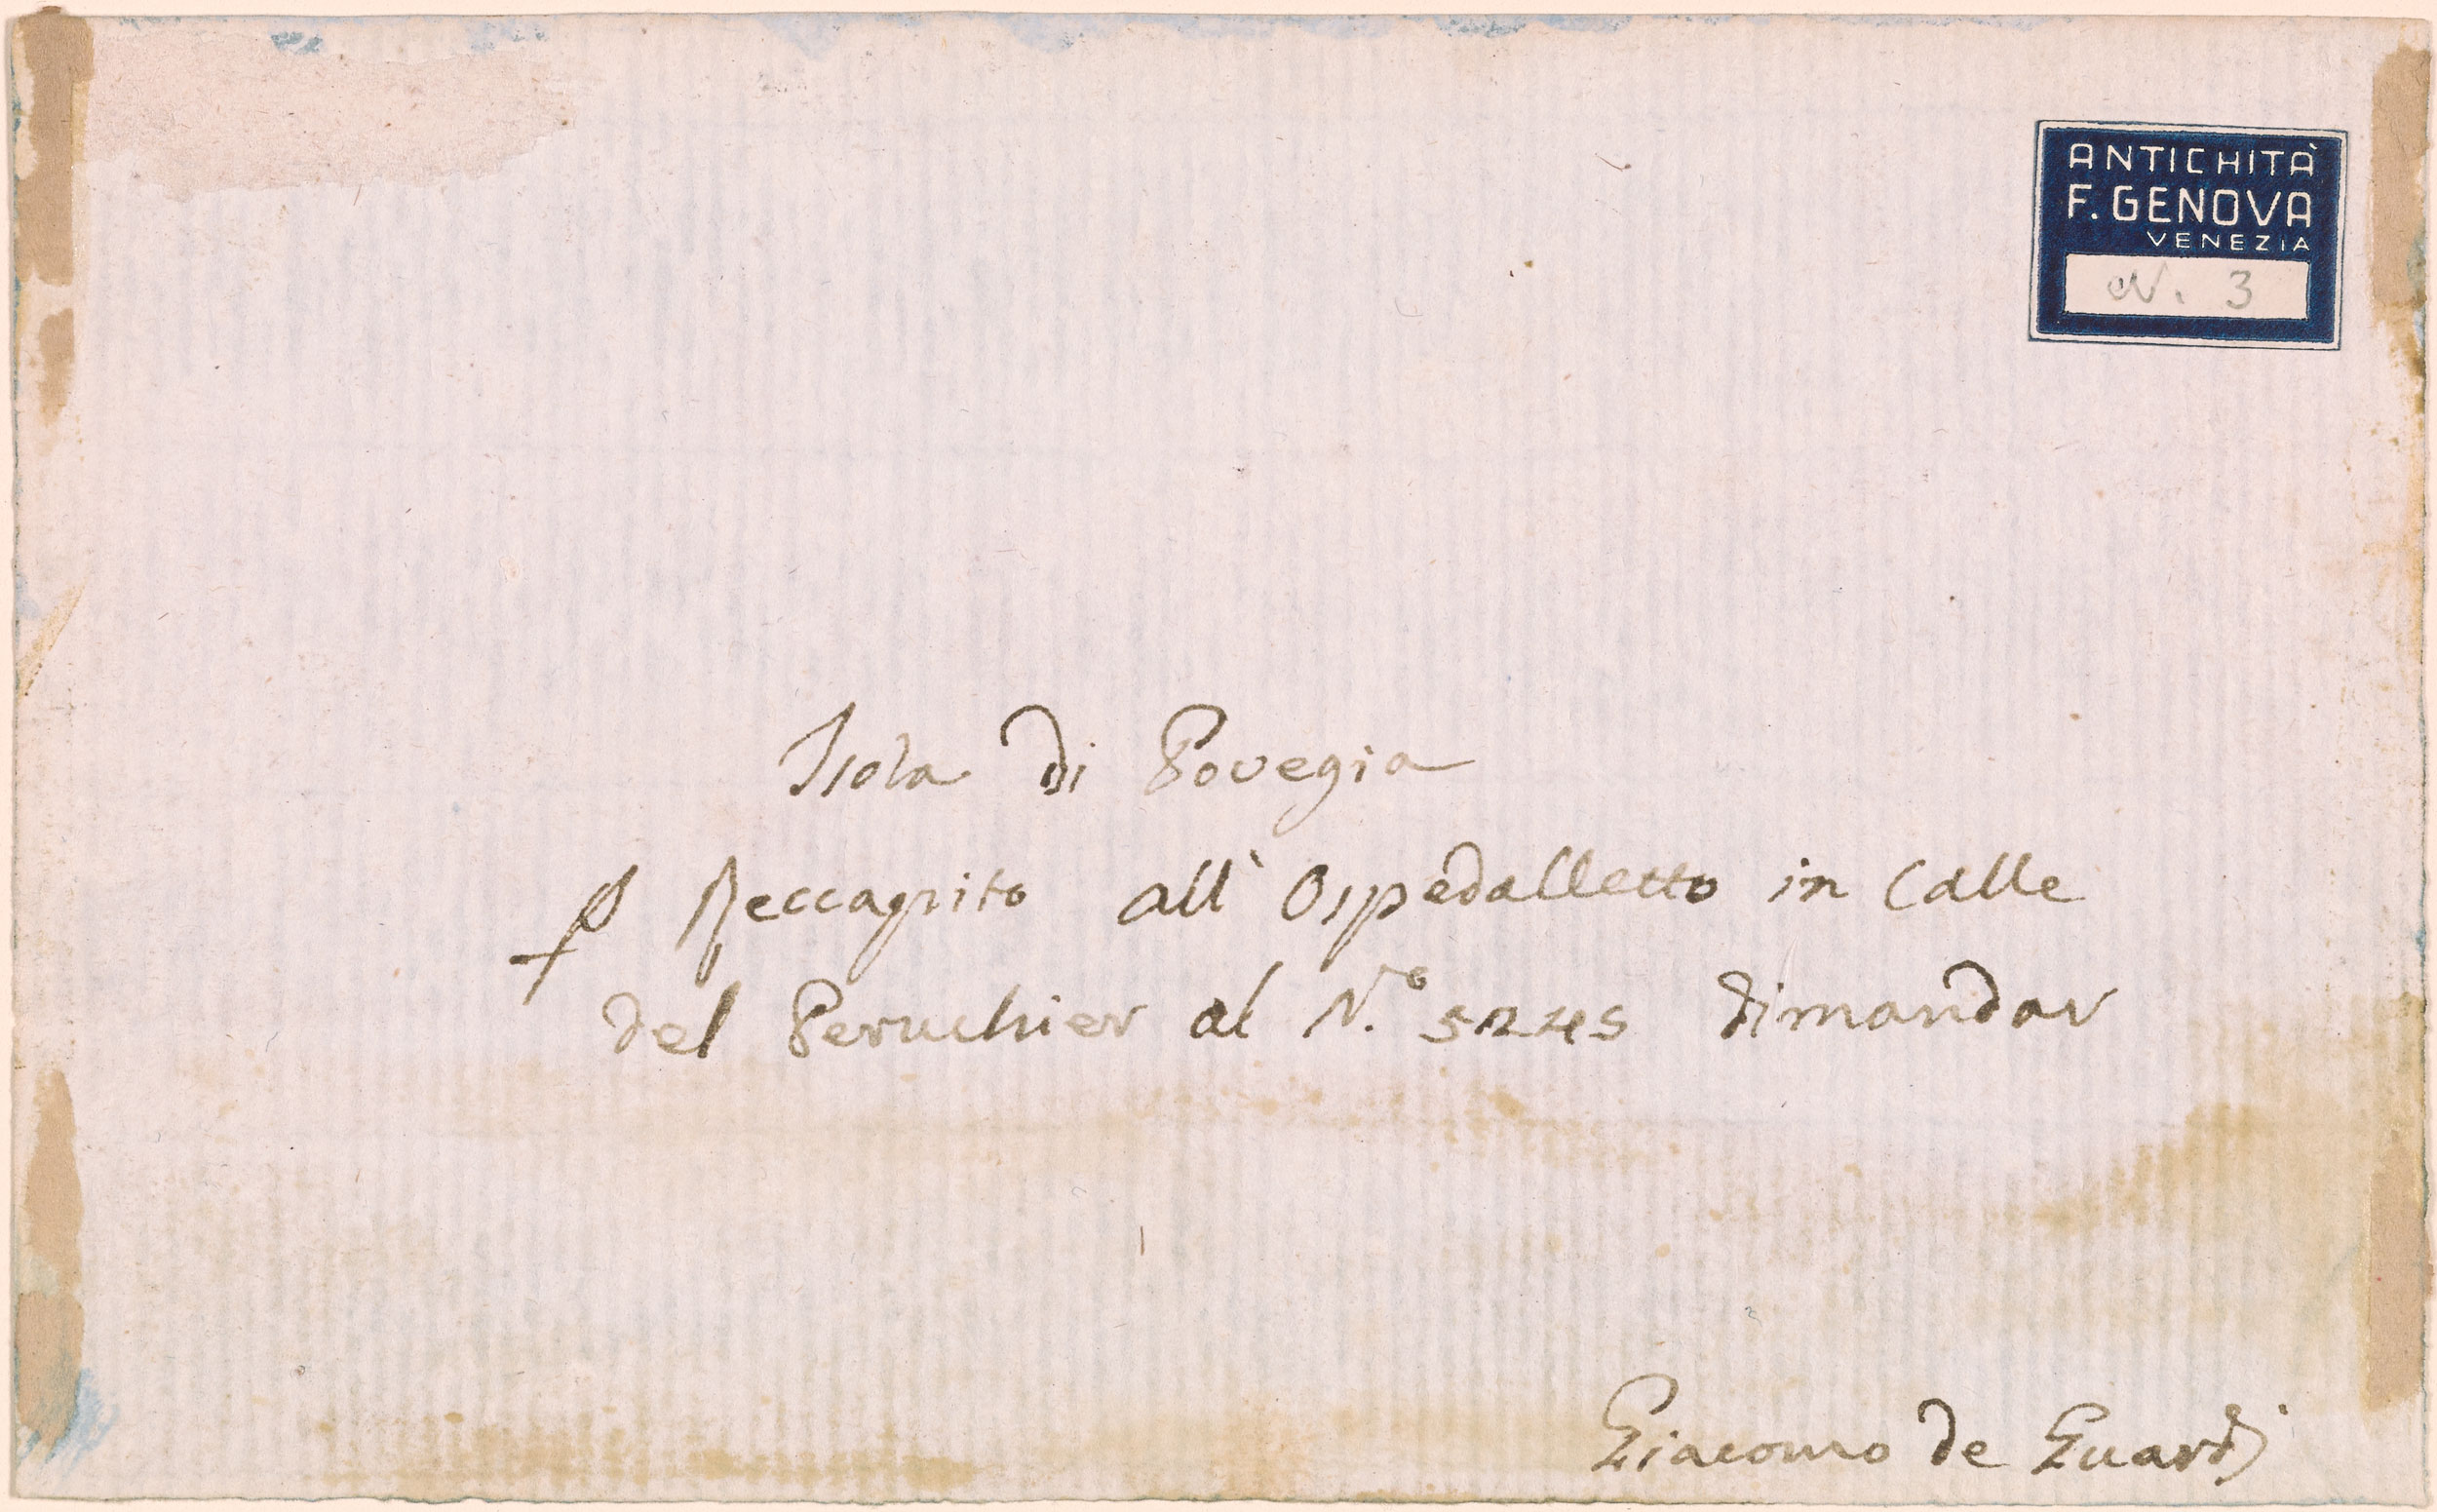 ANTICHITÀ
F. GENOVA
VENEZIA
N. 3
Isola di Povegia
P Reccapito all' Ospedalletto in Calle
del Peruchier al N.º 5245 dimandar
Giacomo de Guardi